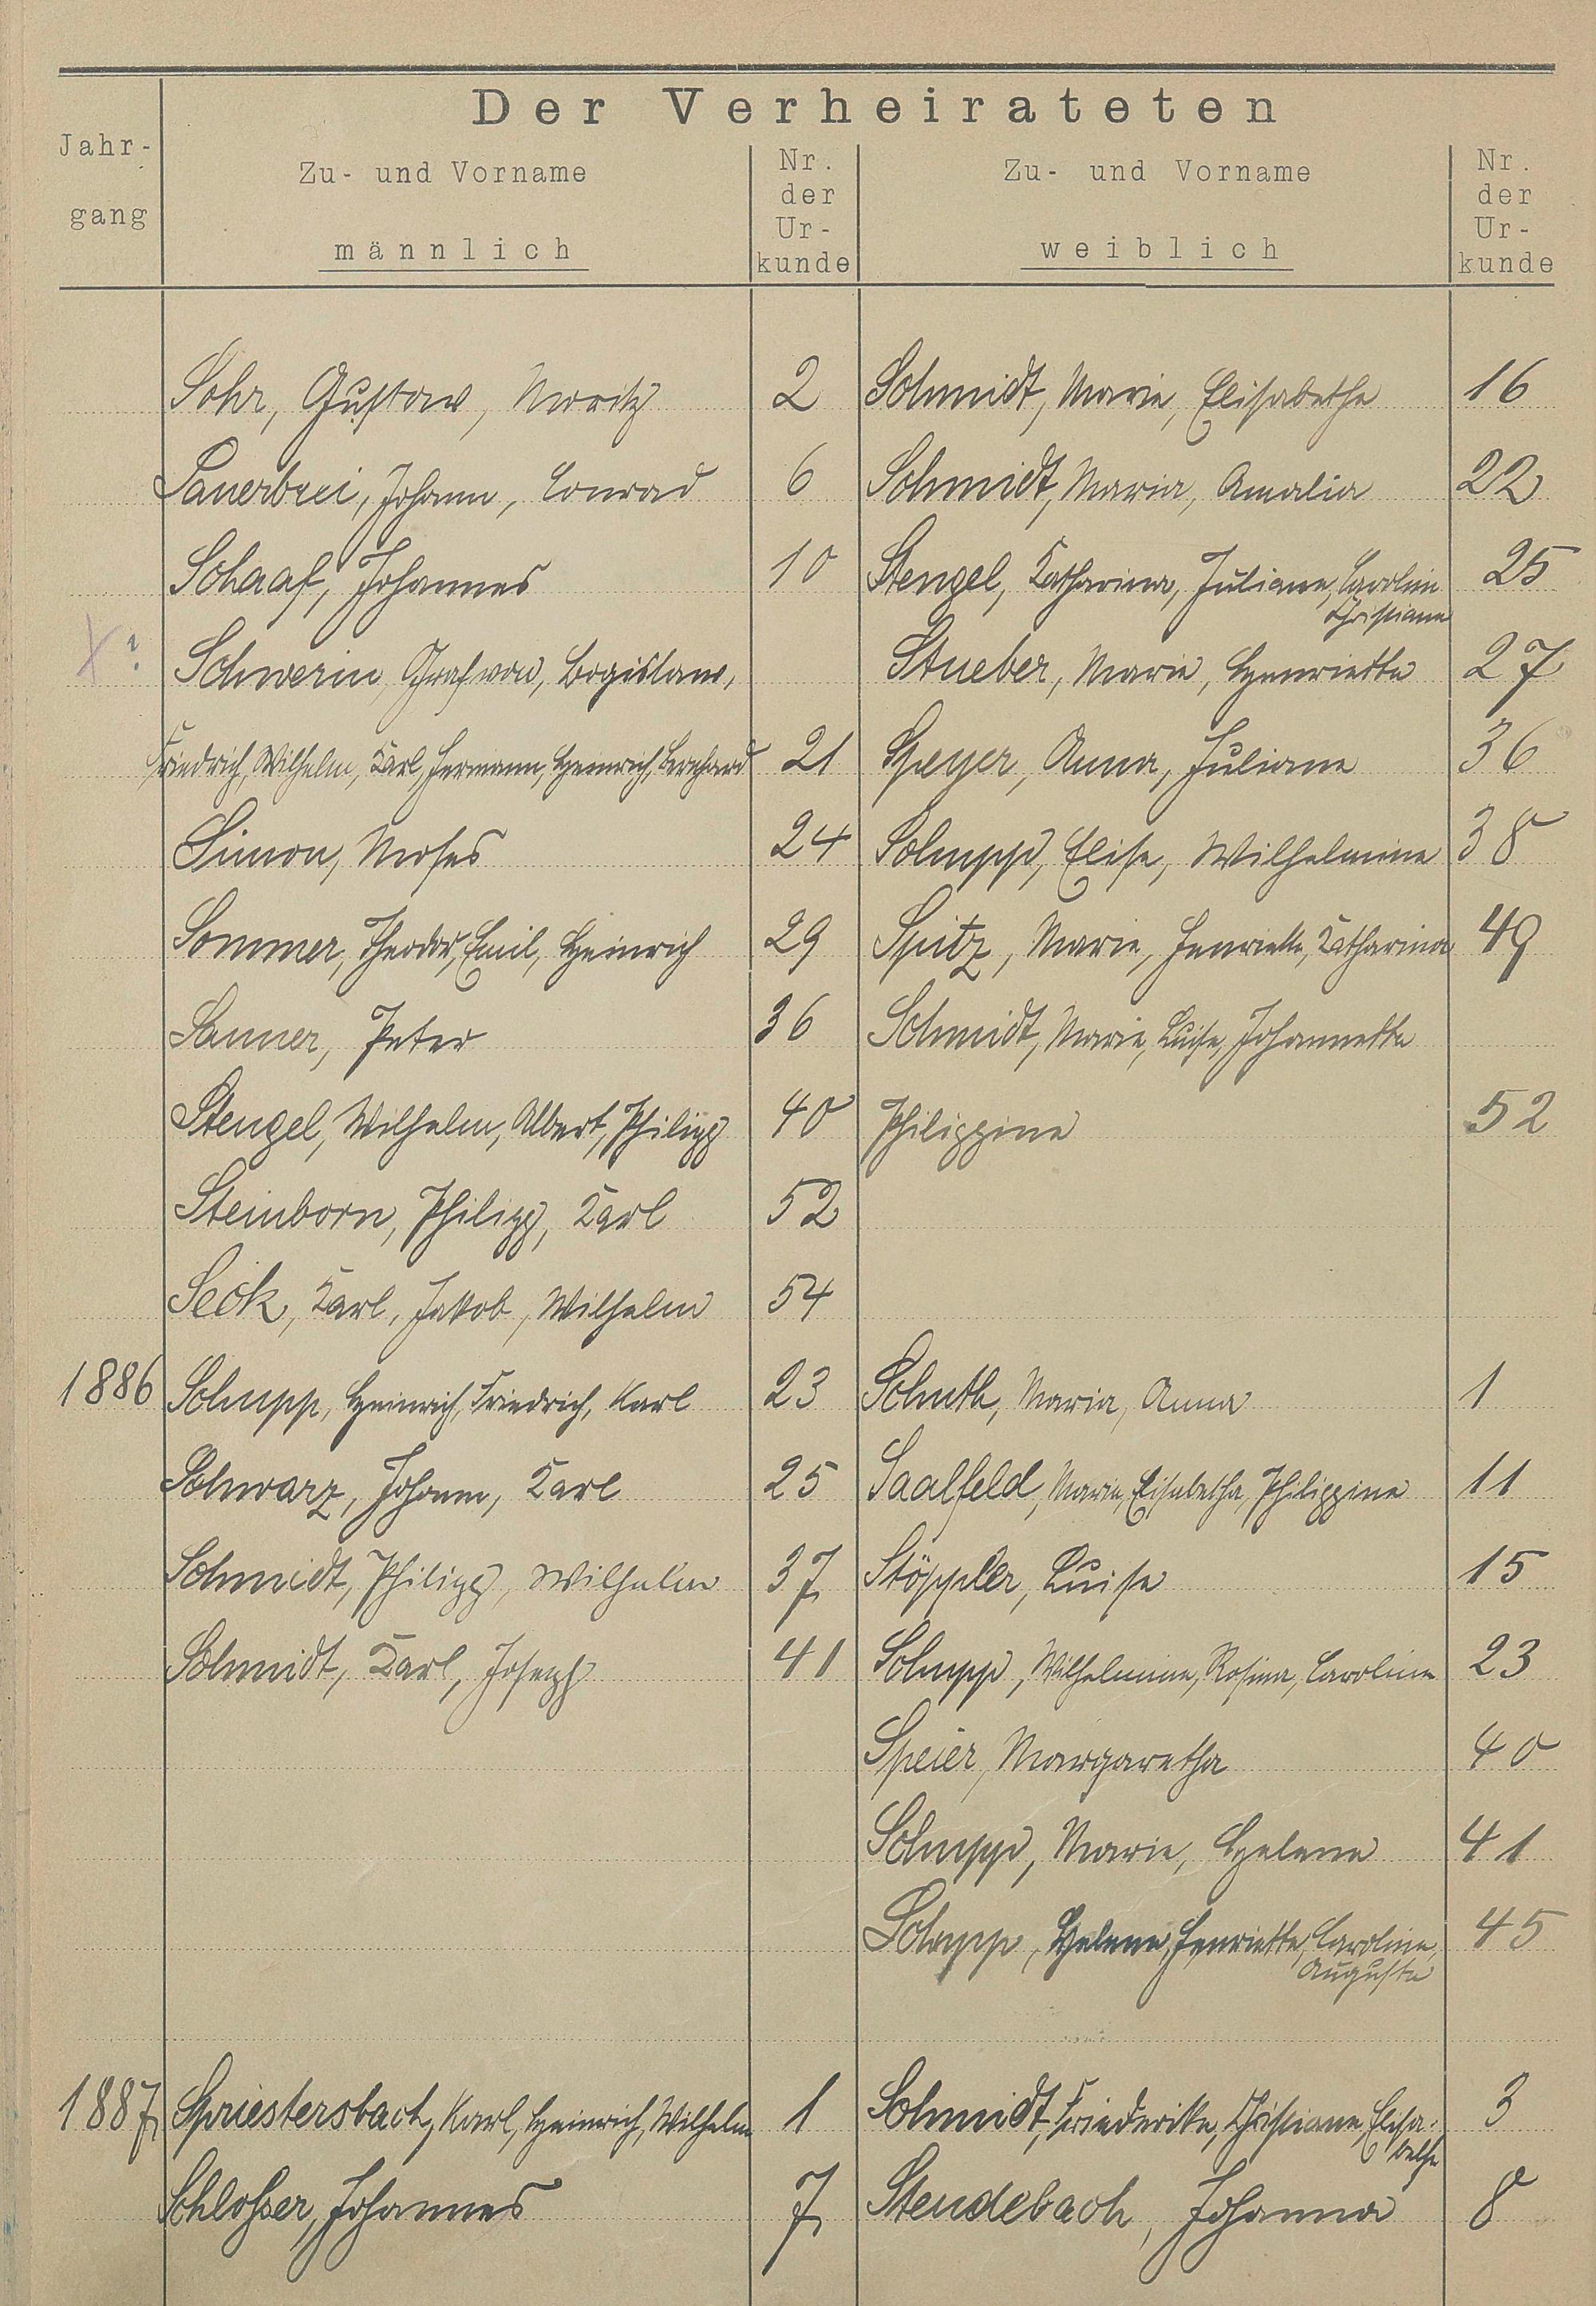 Der Verheirateten
Jahr-
gang
Zu- und Vorname
männlich
Nr.
der
Ur-
kunde
Zu- und Vorname
weiblich
Nr.
der
Ur-
kunde
Sohr, Gustav, Moritz 2 Schmidt, Marie, Elisabethe 16
Sauerbrei, Johann, Conrad 6 Schmidt, Maria, Amalia 22
Schaaf, Johannes 10 Stengel, Katharina, Juliane, Carolin 25
Christiane
X? Schwerin, Graf von, Bogislaw, Stueber, Marie, Henriette 27
Friedrich, Wilhelm, Karl, Hermann, Heinrich, Bernhard 21 Speyer, Anna, Juliane 36
Simon, Moses 24 Schupp, Elise, Wilhelmine 38
Sommer, Theodor, Emil, Heinrich 29 Spitz, Marie, Henriette, Katharina 49
Sanner, Peter 36 Schmidt, Marie, Luise, Johannette
Stengel, Wilhelm, Albert, Philipp 40 Philippine 52
Steinborn, Philipp, Karl 52
Seck, Karl, Jakob, Wilhelm 54
1886 Schupp, Heinrich, Friedrich, Karl 23 Schuth, Maria, Anna 1
Schwarz, Johann, Karl 25 Saalfeld, Marie, Elisabetha, Philippine 11
Schmidt, Philipp, Wilhelm 37 Stöppler, Luise 15
Schmidt, Karl, Joseph 41 Schupp, Wilhelmine, Rosina, Caroline 23
Speier, Margaretha 40
Schupp, Marie, Helene 41
Schupp, Helene, Henriette, Caroline, 45
Auguste
1887 Spriestersbach, Karl, Heinrich, Wilhelm 1 Schmidt, Friederike, Christiane, Elisa- 3
bethe
Schlosser, Johannes 7 Stendebach, Johanna 8